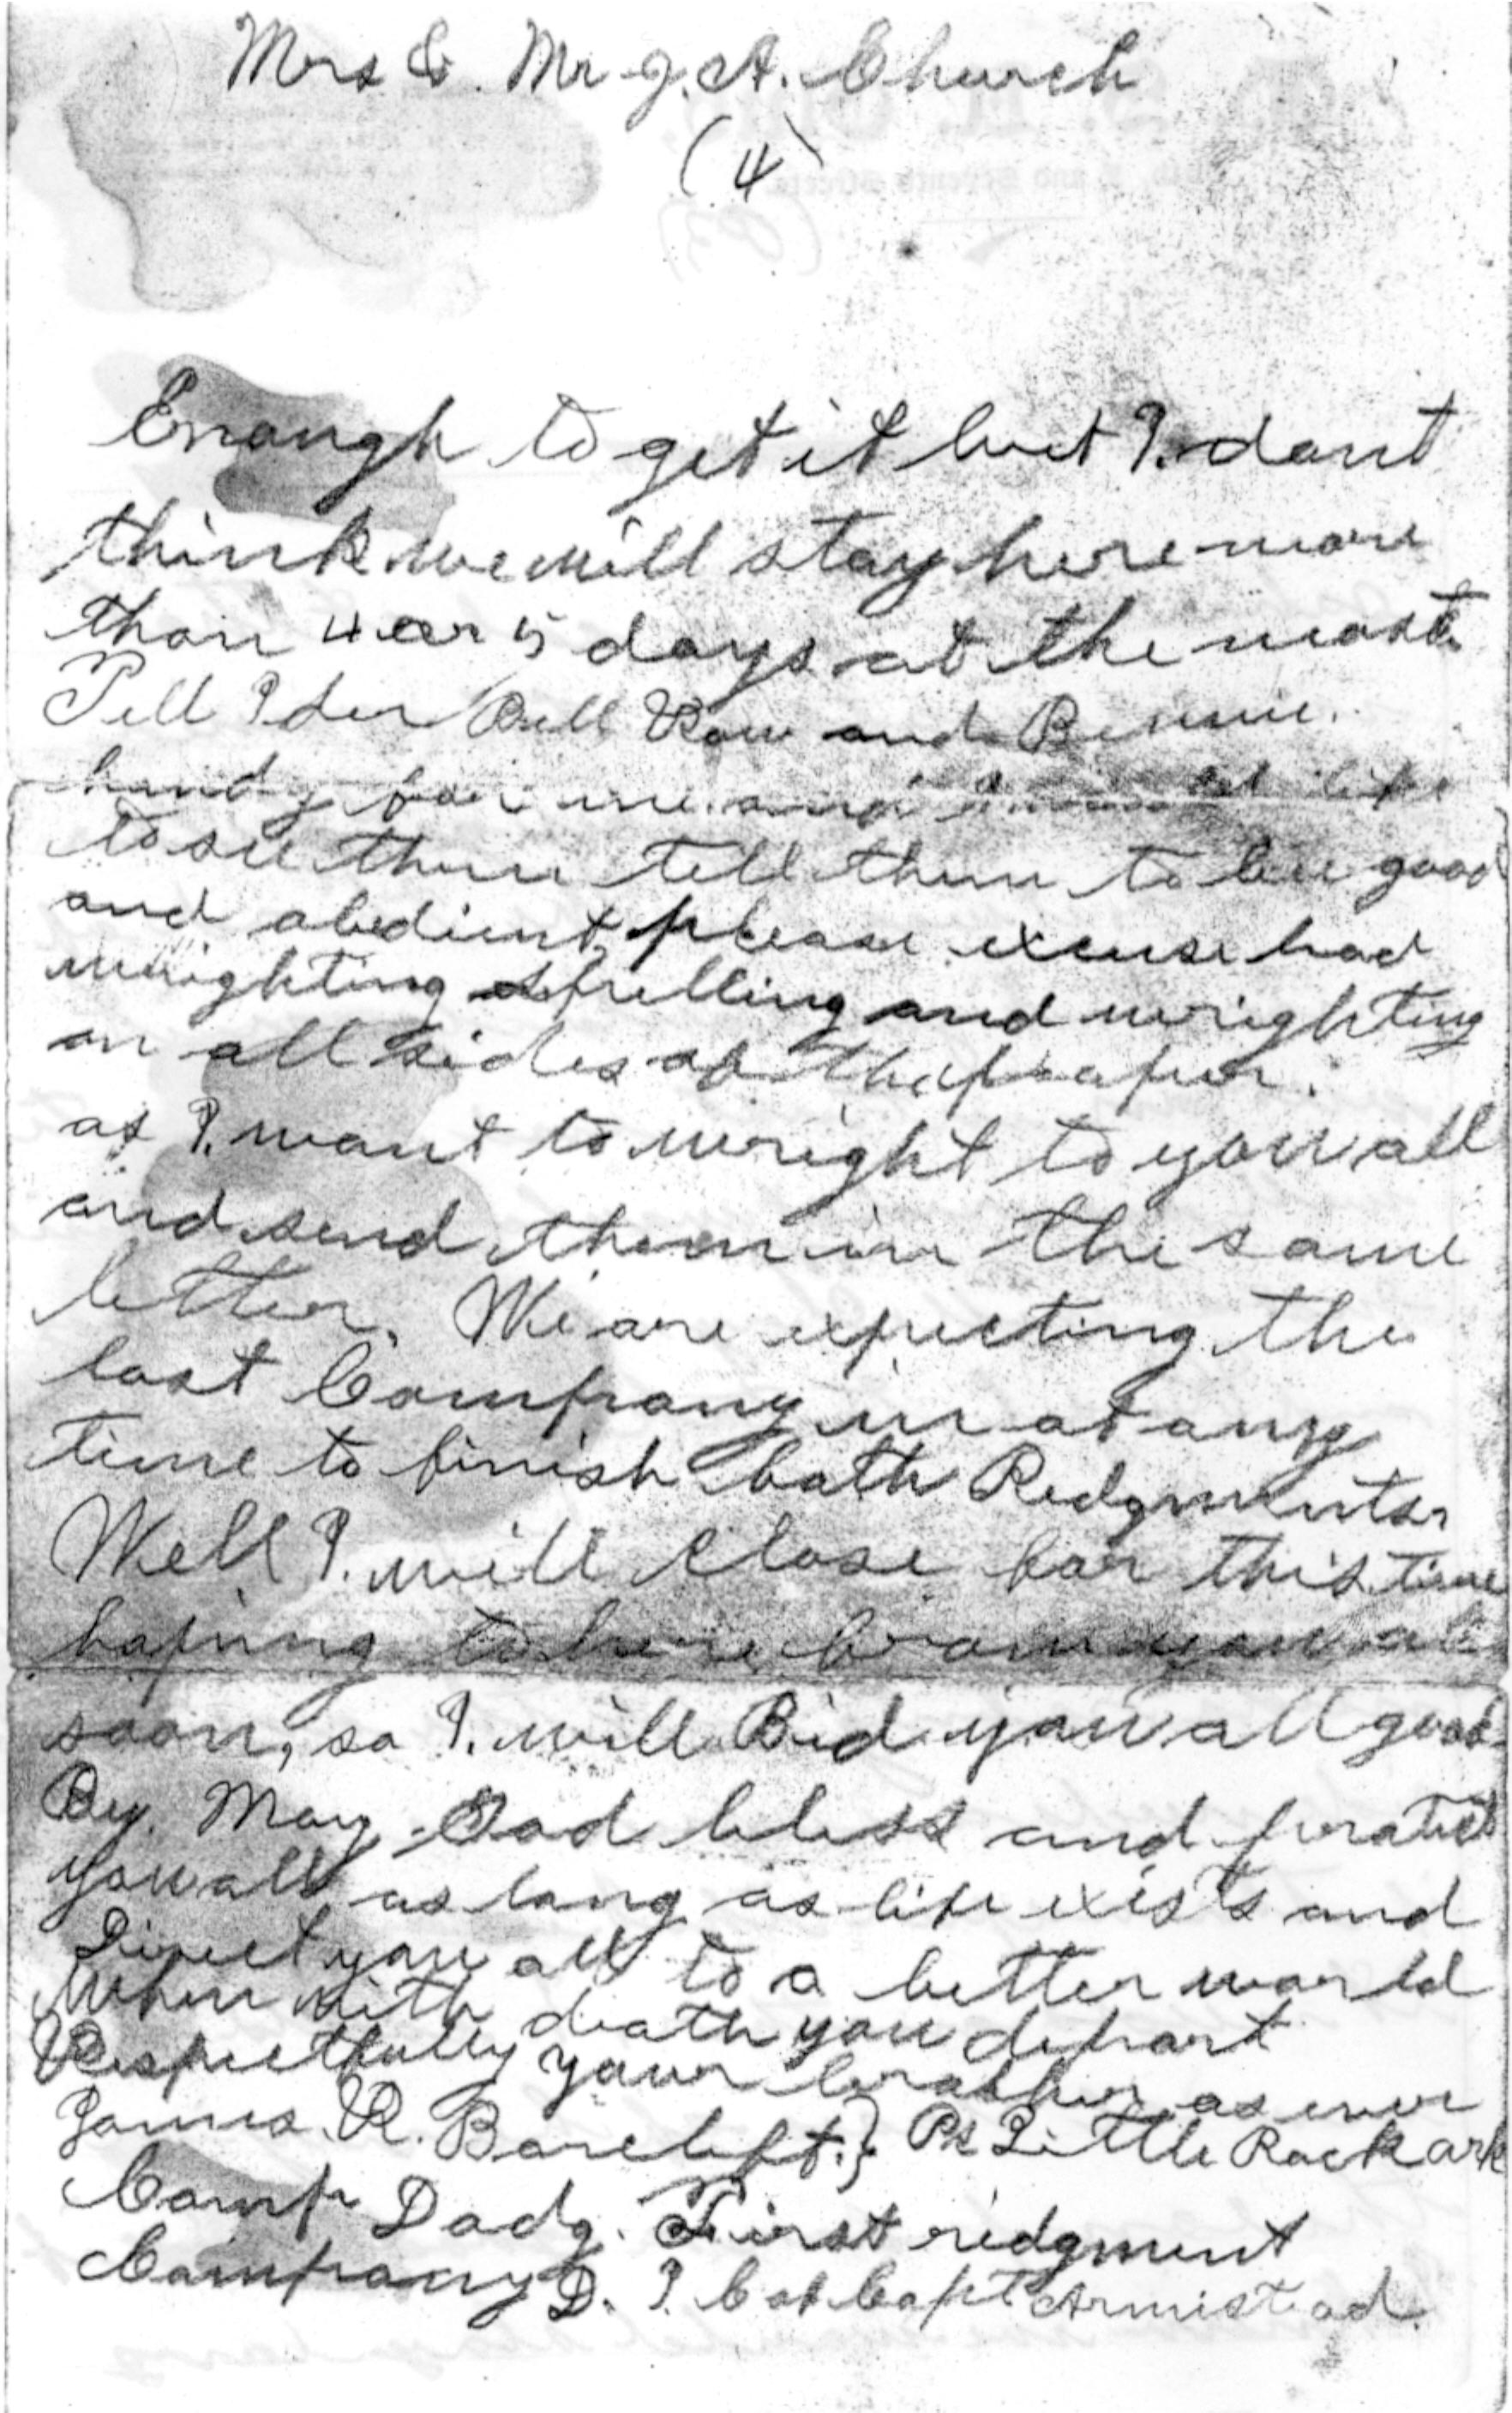 Mrs & Mr J. A. Church
(4)
Enough to get it but I. dont
think we will stay here more
than 4 or 5 days at the most
Tell Ider Bell Row and Bennie.
howdy for me and I would like
to see them tell them to bee good
and obedient, please excuse bad
wrighting spelling and wrighting
on all sides of the paper.
as I. want to wright to you all
and send them in the same
letter. We are expecting the
last Company in at any
time to finish both Redgments.
Well I. will close for this time
hoping to here from you all
soon, so I. will Bid you all good
By. May God bless and protect
you all as long as life exists and
Direct you all to a better world
When with death you depart
Respectfully your brother as ever
James. R. Barcleft. } Ps Little Rock ark
Camp Dodg. First ridgment
Company D. Capt Armistead.